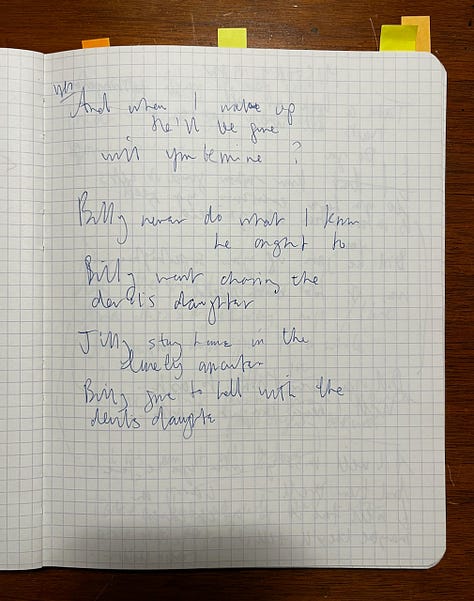 And when I wake up
he'll be gone
will you be mine ?
Billy never do what I know
he ought to
Billy went chasing the
devil's daughter
Jilly stay home in the
lonely
Billy gone to hell with the
devils daughte